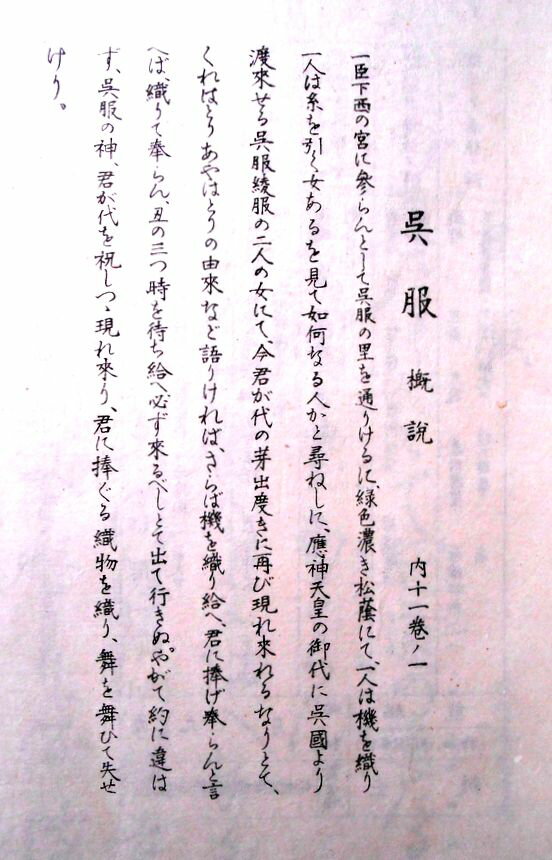 呉服 概説 内十一巻ノ一
一臣下西の宮に參らんとして呉服の里を通りけるに、緑色濃き松蔭にて、一人は機を織り
一人は糸を引く女あるを見て如何なる人かと尋ねしに、應神天皇の御代に呉國より
渡來せる呉服綾服の二人の女にて、今君が代の芽出度きに再び現れ來れるなりとて、
くれはとりあやはとりの由來など語りければ、さらば機を織り給へ、君に捧げ奉らんと言
へば、織りて奉らん、丑の三つ時を待ち給へ必ず來るべしとて出て行きぬ。やがて約に違は
ず、呉服の神、君が代を祝しつゝ現れ來り、君に捧ぐる織物を織り、舞を舞ひて失せ
けり。